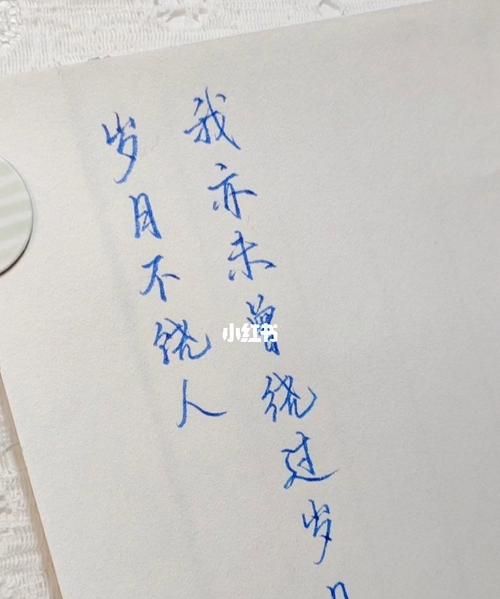 岁月不绕人
我亦未曾绕过岁
小红书